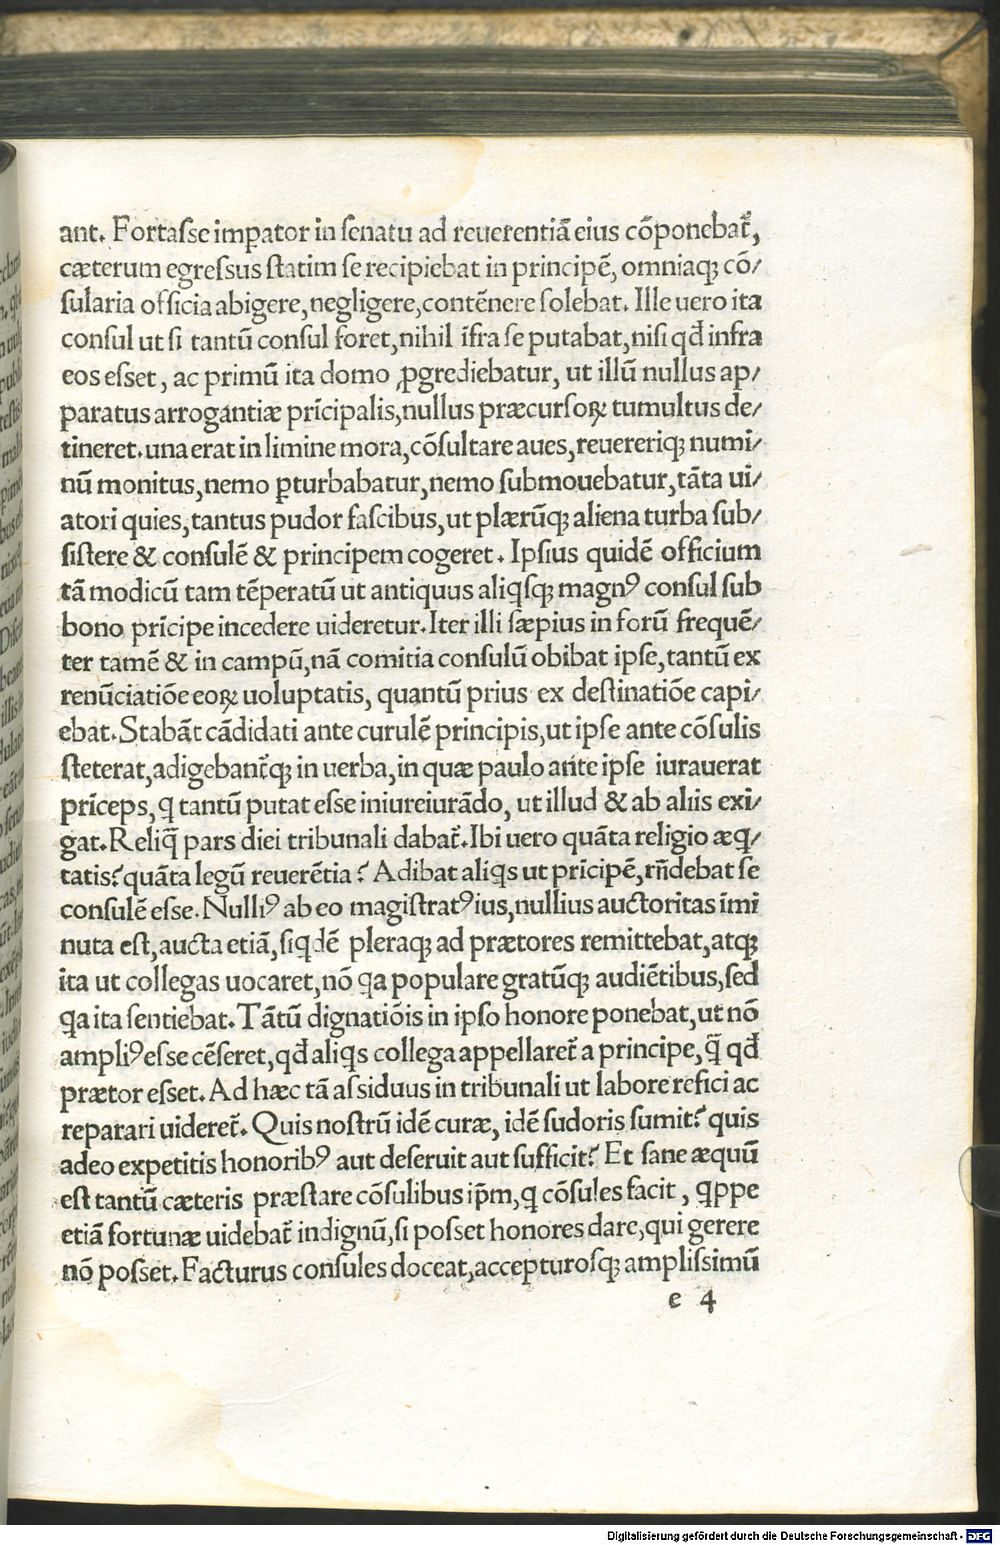 ant. Fortaſſe imꝑator in ſenatu ad reuerentiā eius cōponebat᷑,
cæterum egreſſus ſtatim ſe recipiebat in principē, omniaqꝫ cō/
ſularia officia abigere, negligere, contēnere ſolebat. Ille uero ita
conſul ut ſi tantū conſul foret, nihil īfra ſe putabat, niſi qđ infra
eos eſſet, ac primū ita domo ꝓgrediebatur, ut illū nullus ap/
paratus arrogantiæ prīcipalis, nullus præcurſoꝝ tumultus de/
tineret. una erat in limine mora, cōſultare aues, reuereriqꝫ numi/
nū monitus, nemo ꝑturbabatur, nemo ſubmouebatur, tāta ui/
atori quies, tantus pudor faſcibus, ut plærūqꝫ aliena turba ſub/
ſiſtere & conſulē & principem cogeret. Ipſius quidē officium
tā modicū tam tēperatū ut antiquus aliqſqꝫ magnꝰ conſul ſub
bono prīcipe incedere uideretur. Iter illi ſæpius in forū frequē/
ter tamē & in campū, nā comitia conſulū obibat ipſe, tantū ex
renūciatiōe eoꝝ uoluptatis, quantū prius ex deſtinatiōe capi/
ebat. Stabāt cādidati ante curulē principis, ut ipſe ante cōſulis
ſteterat, adigebant᷑qꝫ in uerba, in quæ paulo ante ipſe iurauerat
prīceps, q tantū putat eſſe iniureiurādo, ut illud & ab aliis exi/
gat. Reliq̄ pars diei tribunali dabat᷑. Ibi uero quāta religio æq/
tatis? quāta legū reuerētia? Adibat aliqs ut prīcipē, rn̄debat ſe
conſulē eſſe. Nulliꝰ ab eo magiſtratꝰ ius, nullius auctoritas īmi
nuta eſt, aucta etiā, ſiqdē pleraqꝫ ad prætores remittebat, atqꝫ
ita ut collegas uocaret, nō qa populare gratūqꝫ audiētibus, ſed
qa ita ſentiebat. Tātū dignatiōis in ipſo honore ponebat, ut nō
ampliꝰ eſſe cēſeret, qđ aliqs collega appellaret᷑ a principe, q̄ qđ
prætor eſſet. Ad hæc tā aſſiduus in tribunali ut labore refici ac
reparari uideret᷑. Quis noſtrū idē curæ, idē ſudoris ſumit? quis
adeo expetitis honoribꝰ aut deſeruit aut ſufficit? Et ſane æquū
eſt tantū cæteris præſtare cōſulibus ip̄m, q cōſules facit, qppe
etiā fortunæ uidebat᷑ indignū, ſi poſſet honores dare, qui gerere
nō poſſet. Facturus conſules doceat, accepturoſqꝫ ampliſſimū
e 4
Digitalisierung gefördert durch die Deutsche Forschungsgemeinschaft - DFG